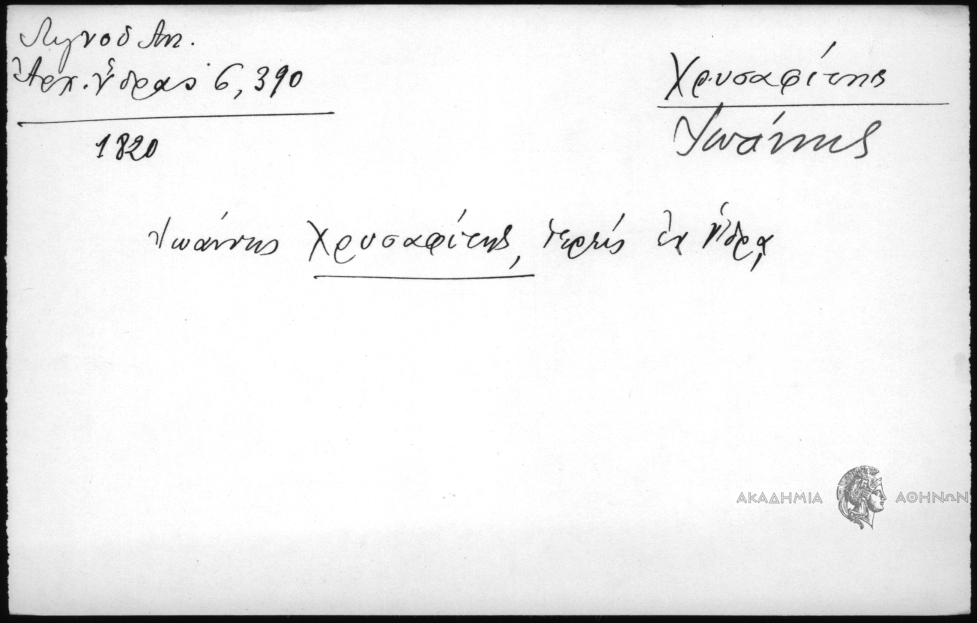 Λιγνοῦ Ἀπ.
Ἀρχ. Ὕδρας 6, 390
1820
Χρυσαφίτης
Ἰωάννης
Ἰωάννης Χρυσαφίτης, ἱερεύς ἐν Ὕδρᾳ
ΑΚΑΔΗΜΙΑ ΑΘΗΝΩΝ